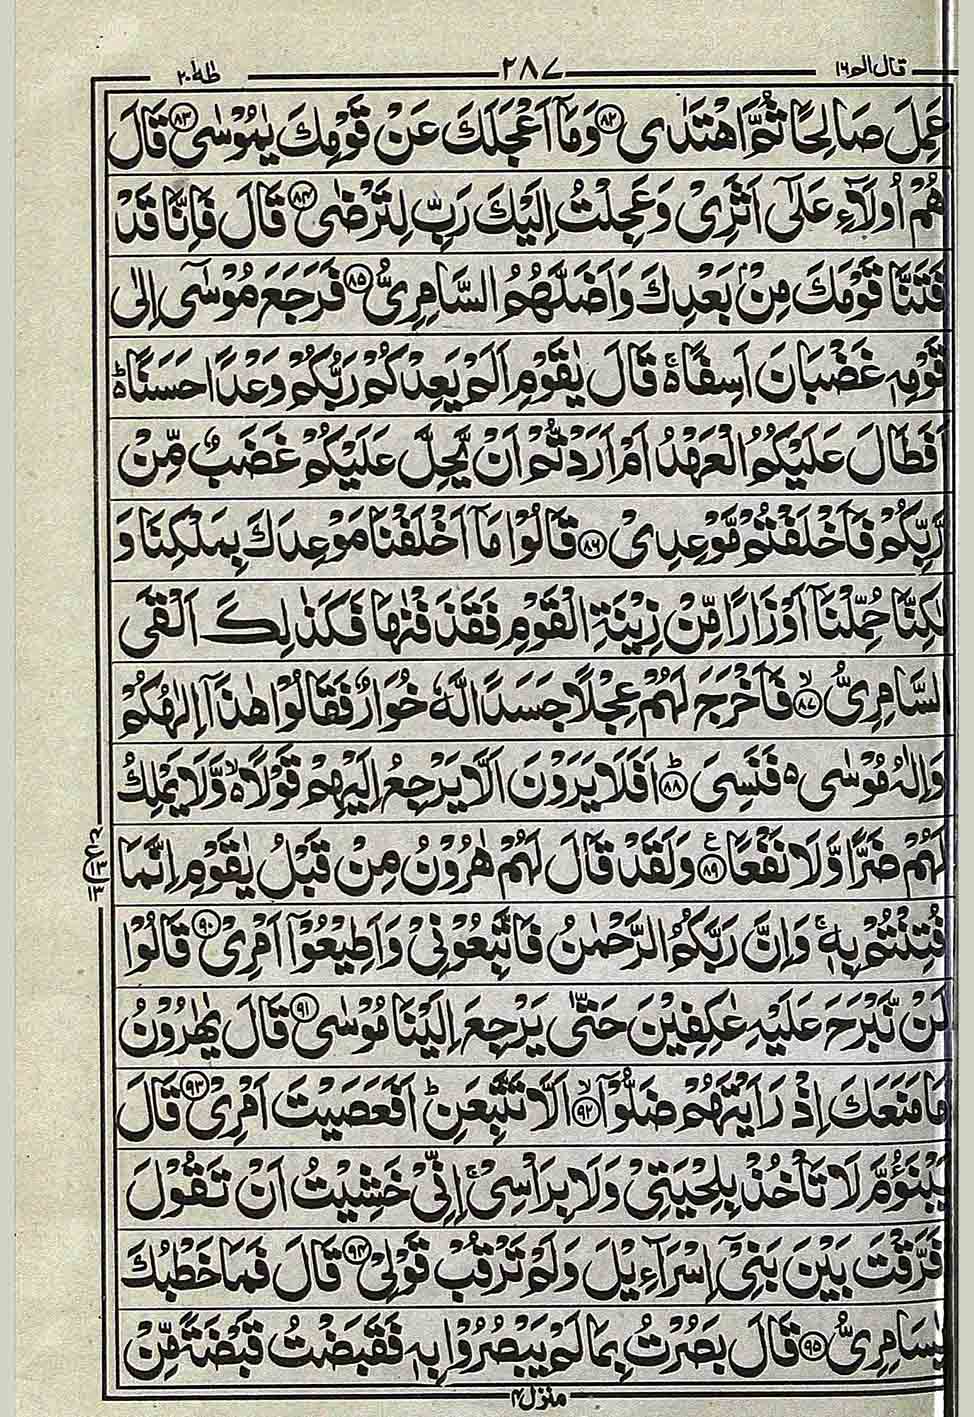 قال الم ١٦ ٢٨٧ طٰهٰ ٢٠
عَمِلَ صَالِحًا ثُمَّ اهْتَدٰی ﴿۸۲﴾ وَمَاۤ اَعْجَلَكَ عَنْ قَوْمِكَ یٰمُوْسٰی ﴿۸۳﴾ قَالَ
هُمْ اُولَآءِ عَلٰۤی اَثَرِیْ وَعَجِلْتُ اِلَیْكَ رَبِّ لِتَرْضٰی ﴿۸۴﴾ قَالَ فَاِنَّا قَدْ
فَتَنَّا قَوْمَكَ مِنْۢ بَعْدِكَ وَاَضَلَّهُمُ السَّامِرِیُّ ﴿۸۵﴾ فَرَجَعَ مُوْسٰۤی اِلٰی
قَوْمِهٖ غَضْبَانَ اَسِفًا ۚ۬ قَالَ یٰقَوْمِ اَلَمْ یَعِدْكُمْ رَبُّكُمْ وَعْدًا حَسَنًا ۬ؕ
اَفَطَالَ عَلَیْكُمُ الْعَهْدُ اَمْ اَرَدْتُّمْ اَنْ یَّحِلَّ عَلَیْكُمْ غَضَبٌ مِّنْ
رَّبِّكُمْ فَاَخْلَفْتُمْ مَّوْعِدِیْ ﴿۸۶﴾ قَالُوْا مَاۤ اَخْلَفْنَا مَوْعِدَكَ بِمَلْكِنَا وَ
لٰكِنَّا حُمِّلْنَاۤ اَوْزَارًا مِّنْ زِیْنَةِ الْقَوْمِ فَقَذَفْنٰهَا فَكَذٰلِكَ اَلْقَی
السَّامِرِیُّ ﴿ۙ۸۷﴾ فَاَخْرَجَ لَهُمْ عِجْلًا جَسَدًا لَّهٗ خُوَارٌ فَقَالُوْا هٰذَاۤ اِلٰهُكُمْ
وَاِلٰهُ مُوْسٰی ۬ فَنَسِیَ ﴿ؕ۸۸﴾ اَفَلَا یَرَوْنَ اَلَّا یَرْجِعُ اِلَیْهِمْ قَوْلًا ۬ۙ وَّلَا یَمْلِكُ
لَهُمْ ضَرًّا وَّلَا نَفْعًا ﴿۸۹﴾ ع وَلَقَدْ قَالَ لَهُمْ هٰرُوْنُ مِنْ قَبْلُ یٰقَوْمِ اِنَّمَا
ع ١٣ ١٣
فُتِنْتُمْ بِهٖ ۚ وَاِنَّ رَبَّكُمُ الرَّحْمٰنُ فَاتَّبِعُوْنِیْ وَاَطِیْعُوْۤا اَمْرِیْ ﴿۹۰﴾ قَالُوْا
لَنْ نَّبْرَحَ عَلَیْهِ عٰكِفِیْنَ حَتّٰی یَرْجِعَ اِلَیْنَا مُوْسٰی ﴿۹۱﴾ قَالَ یٰهٰرُوْنُ
مَا مَنَعَكَ اِذْ رَاَیْتَهُمْ ضَلُّوْۤا ﴿ۙ۹۲﴾ اَلَّا تَتَّبِعَنِ ؕ اَفَعَصَیْتَ اَمْرِیْ ﴿۹۳﴾ قَالَ
یَبْنَؤُمَّ لَا تَاْخُذْ بِلِحْیَتِیْ وَلَا بِرَاْسِیْ ۚ اِنِّیْ خَشِیْتُ اَنْ تَقُوْلَ
فَرَّقْتَ بَیْنَ بَنِیْۤ اِسْرَآءِیْلَ وَلَمْ تَرْقُبْ قَوْلِیْ ﴿۹۴﴾ قَالَ فَمَا خَطْبُكَ
یٰسَامِرِیُّ ﴿۹۵﴾ قَالَ بَصُرْتُ بِمَا لَمْ یَبْصُرُوْا بِهٖ فَقَبَضْتُ قَبْضَةً مِّنْ
منزل ۴